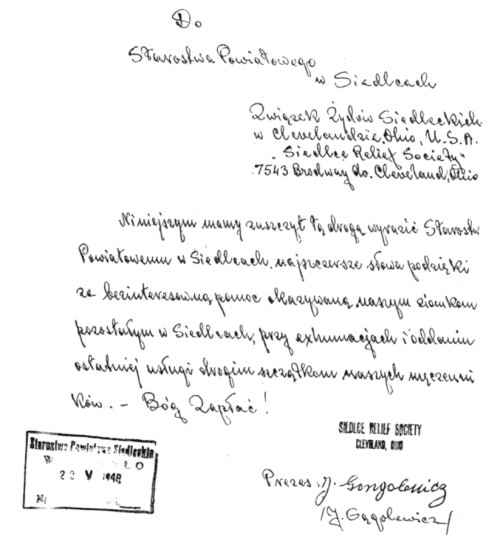 Do
Starostwa Powiatowego
w Siedlcach
Związek Żydów Siedleckich
w Clevelandzie, Ohio, U.S.A.
"Siedlce Relief Society"
7543 Brodway do. Cleveland, Ohio
Niniejszym mamy zaszczyt tą drogą wyrazić Starostw
Powiatowemu w Siedlcach, najszczersze słowa podzięki
za bezinteresowną pomoc okazywaną naszym ziomkom
pozostałym w Siedlcach, przy exhumacjach i oddaniu
ostatniej usługi drogim szczątkom naszych męczenni
ków. — Bóg Zapłać!
SIEDLCE RELIEF SOCIETY
CLEVELAND, OHIO
Starostwo Powiatowe Siedleckie
W Ł O
23 V 1948
Nr
Prezes J. Gongolewicz
/J. Gągolewicz/